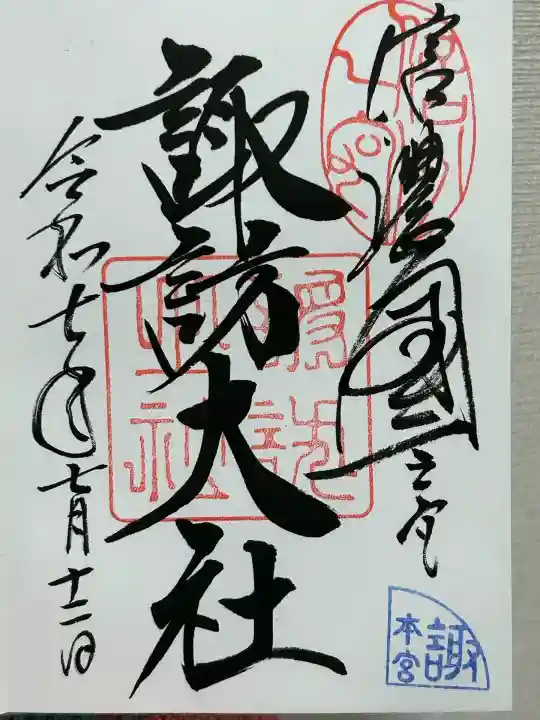 信濃國一之宮
諏訪大社
令和七年七月十二日
諏
本宮